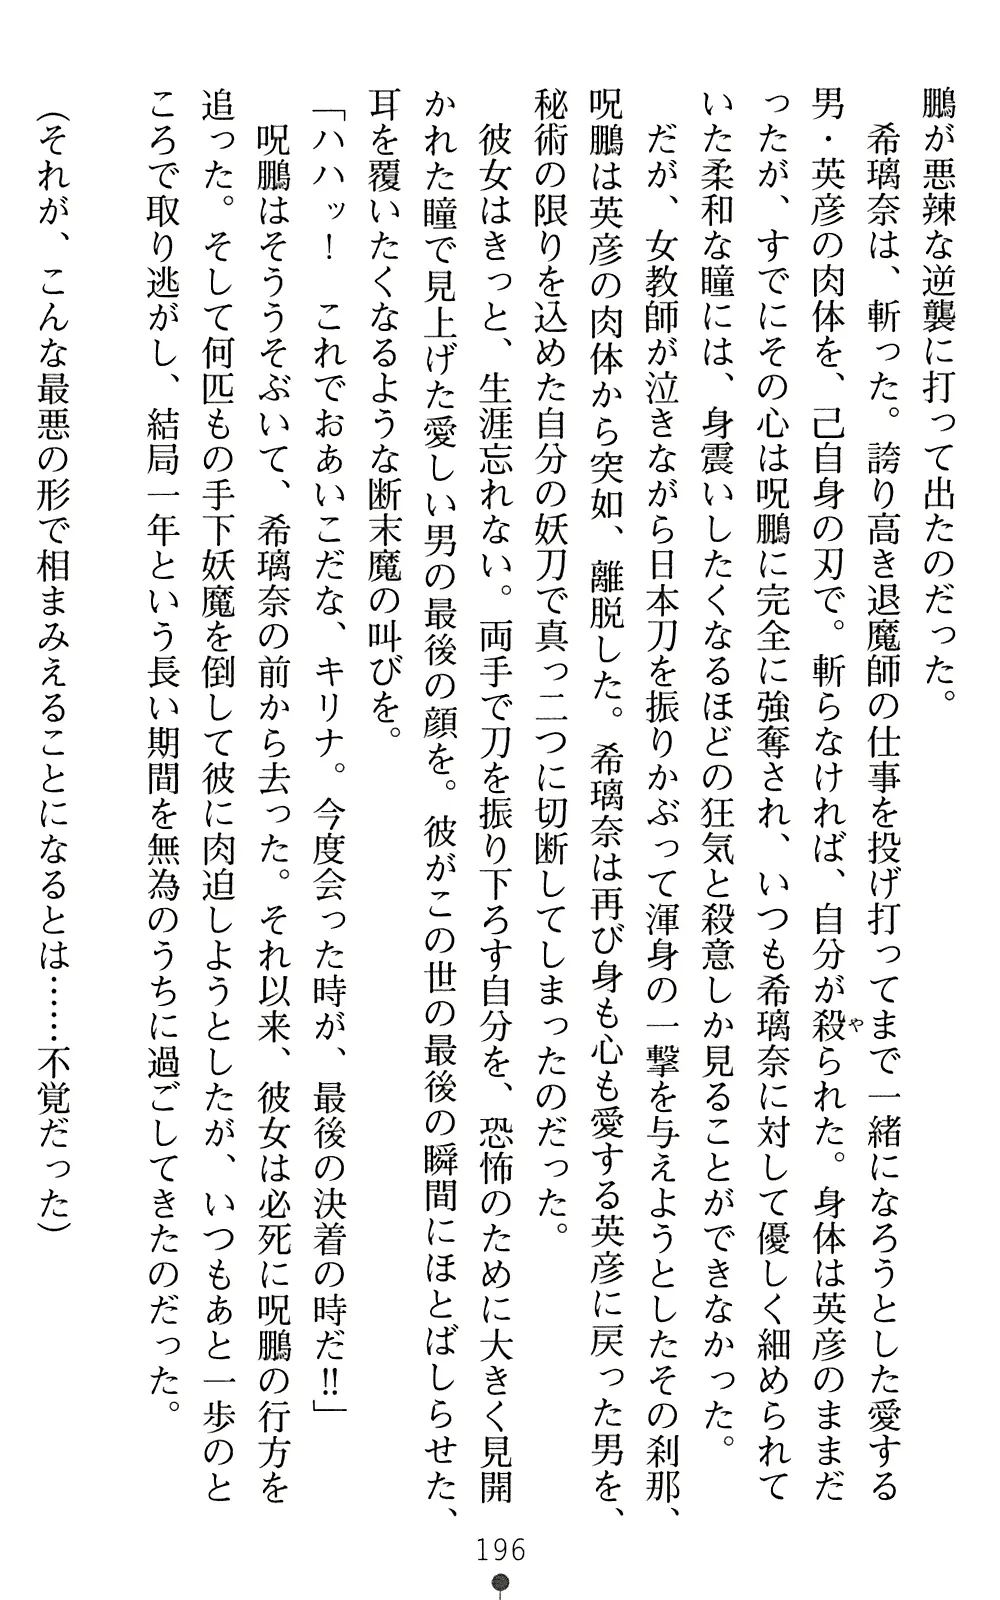 鵬が悪辣な逆襲に打って出たのだった。
　希璃奈は、斬った。誇り高き退魔師の仕事を投げ打ってまで一緒になろうとした愛する
男・英彦の肉体を、己自身の刃で。斬らなければ、自分が殺られた。身体は英彦のままだ
ったが、すでにその心は呪鵬に完全に強奪され、いつも希璃奈に対して優しく細められて
いた柔和な瞳には、身震いしたくなるほどの狂気と殺意しか見ることができなかった。
　だが、女教師が泣きながら日本刀を振りかぶって渾身の一撃を与えようとしたその刹那、
呪鵬は英彦の肉体から突如、離脱した。希璃奈は再び身も心も愛する英彦に戻った男を、
秘術の限りを込めた自分の妖刀で真っ二つに切断してしまったのだった。
　彼女はきっと、生涯忘れない。両手で刀を振り下ろす自分を、恐怖のために大きく見開
かれた瞳で見上げた愛しい男の最後の顔を。彼がこの世の最後の瞬間にほとばしらせた、
耳を覆いたくなるような断末魔の叫びを。
「ハハッ！　これでおあいこだな、キリナ。今度会った時が、最後の決着の時だ‼」
　呪鵬はそううそぶいて、希璃奈の前から去った。それ以来、彼女は必死に呪鵬の行方を
追った。そして何匹もの手下妖魔を倒して彼に肉迫しようとしたが、いつもあと一歩のと
ころで取り逃がし、結局一年という長い期間を無為のうちに過ごしてきたのだった。
（それが、こんな最悪の形で相まみえることになるとは……不覚だった）
や
196